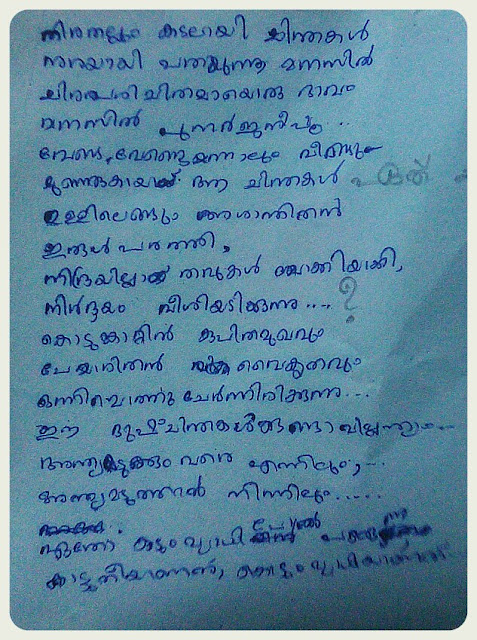 തിരതല്ലും കടലായി ചിന്തകൾ
നുരയായി പതയുന്നു മനസിൽ
ചിരപരിചിതമായൊരു ഭാവം
മനസിൽ പുനർജനിപ്പൂ...
വേണ്ട, വേണ്ടെന്നാലും വീണ്ടും
മുങ്ങുകയായ് ദുഷ ചിന്തകൾ
ഉള്ളിലെങ്ങും അശാന്തിതൻ
ഇരുൾ പരത്തി,
നിദ്രയില്ലാത്ത രാവുകൾ ബാക്കിയാക്കി,
നിർദ്ദയം വീശിയടിക്കുന്നു.... ?
കൊടുങ്കാറ്റിൻ കുപിതമുഖവും
പേമാരിതൻ വൈകൃതവും
ഒന്നിച്ചൊത്തു ചേർന്നിരിക്കുന്നു...
ഈ ദുഷ്ചിന്തകൾക്കുണ്ടാവില്ലന്ത്യം...
അന്ത്യമടുക്കും വരെ എന്നിലും,...
അന്ത്യമടുത്താൽ നിന്നിലും.....
ഏതോ കടും വ്യാധി പോൽ